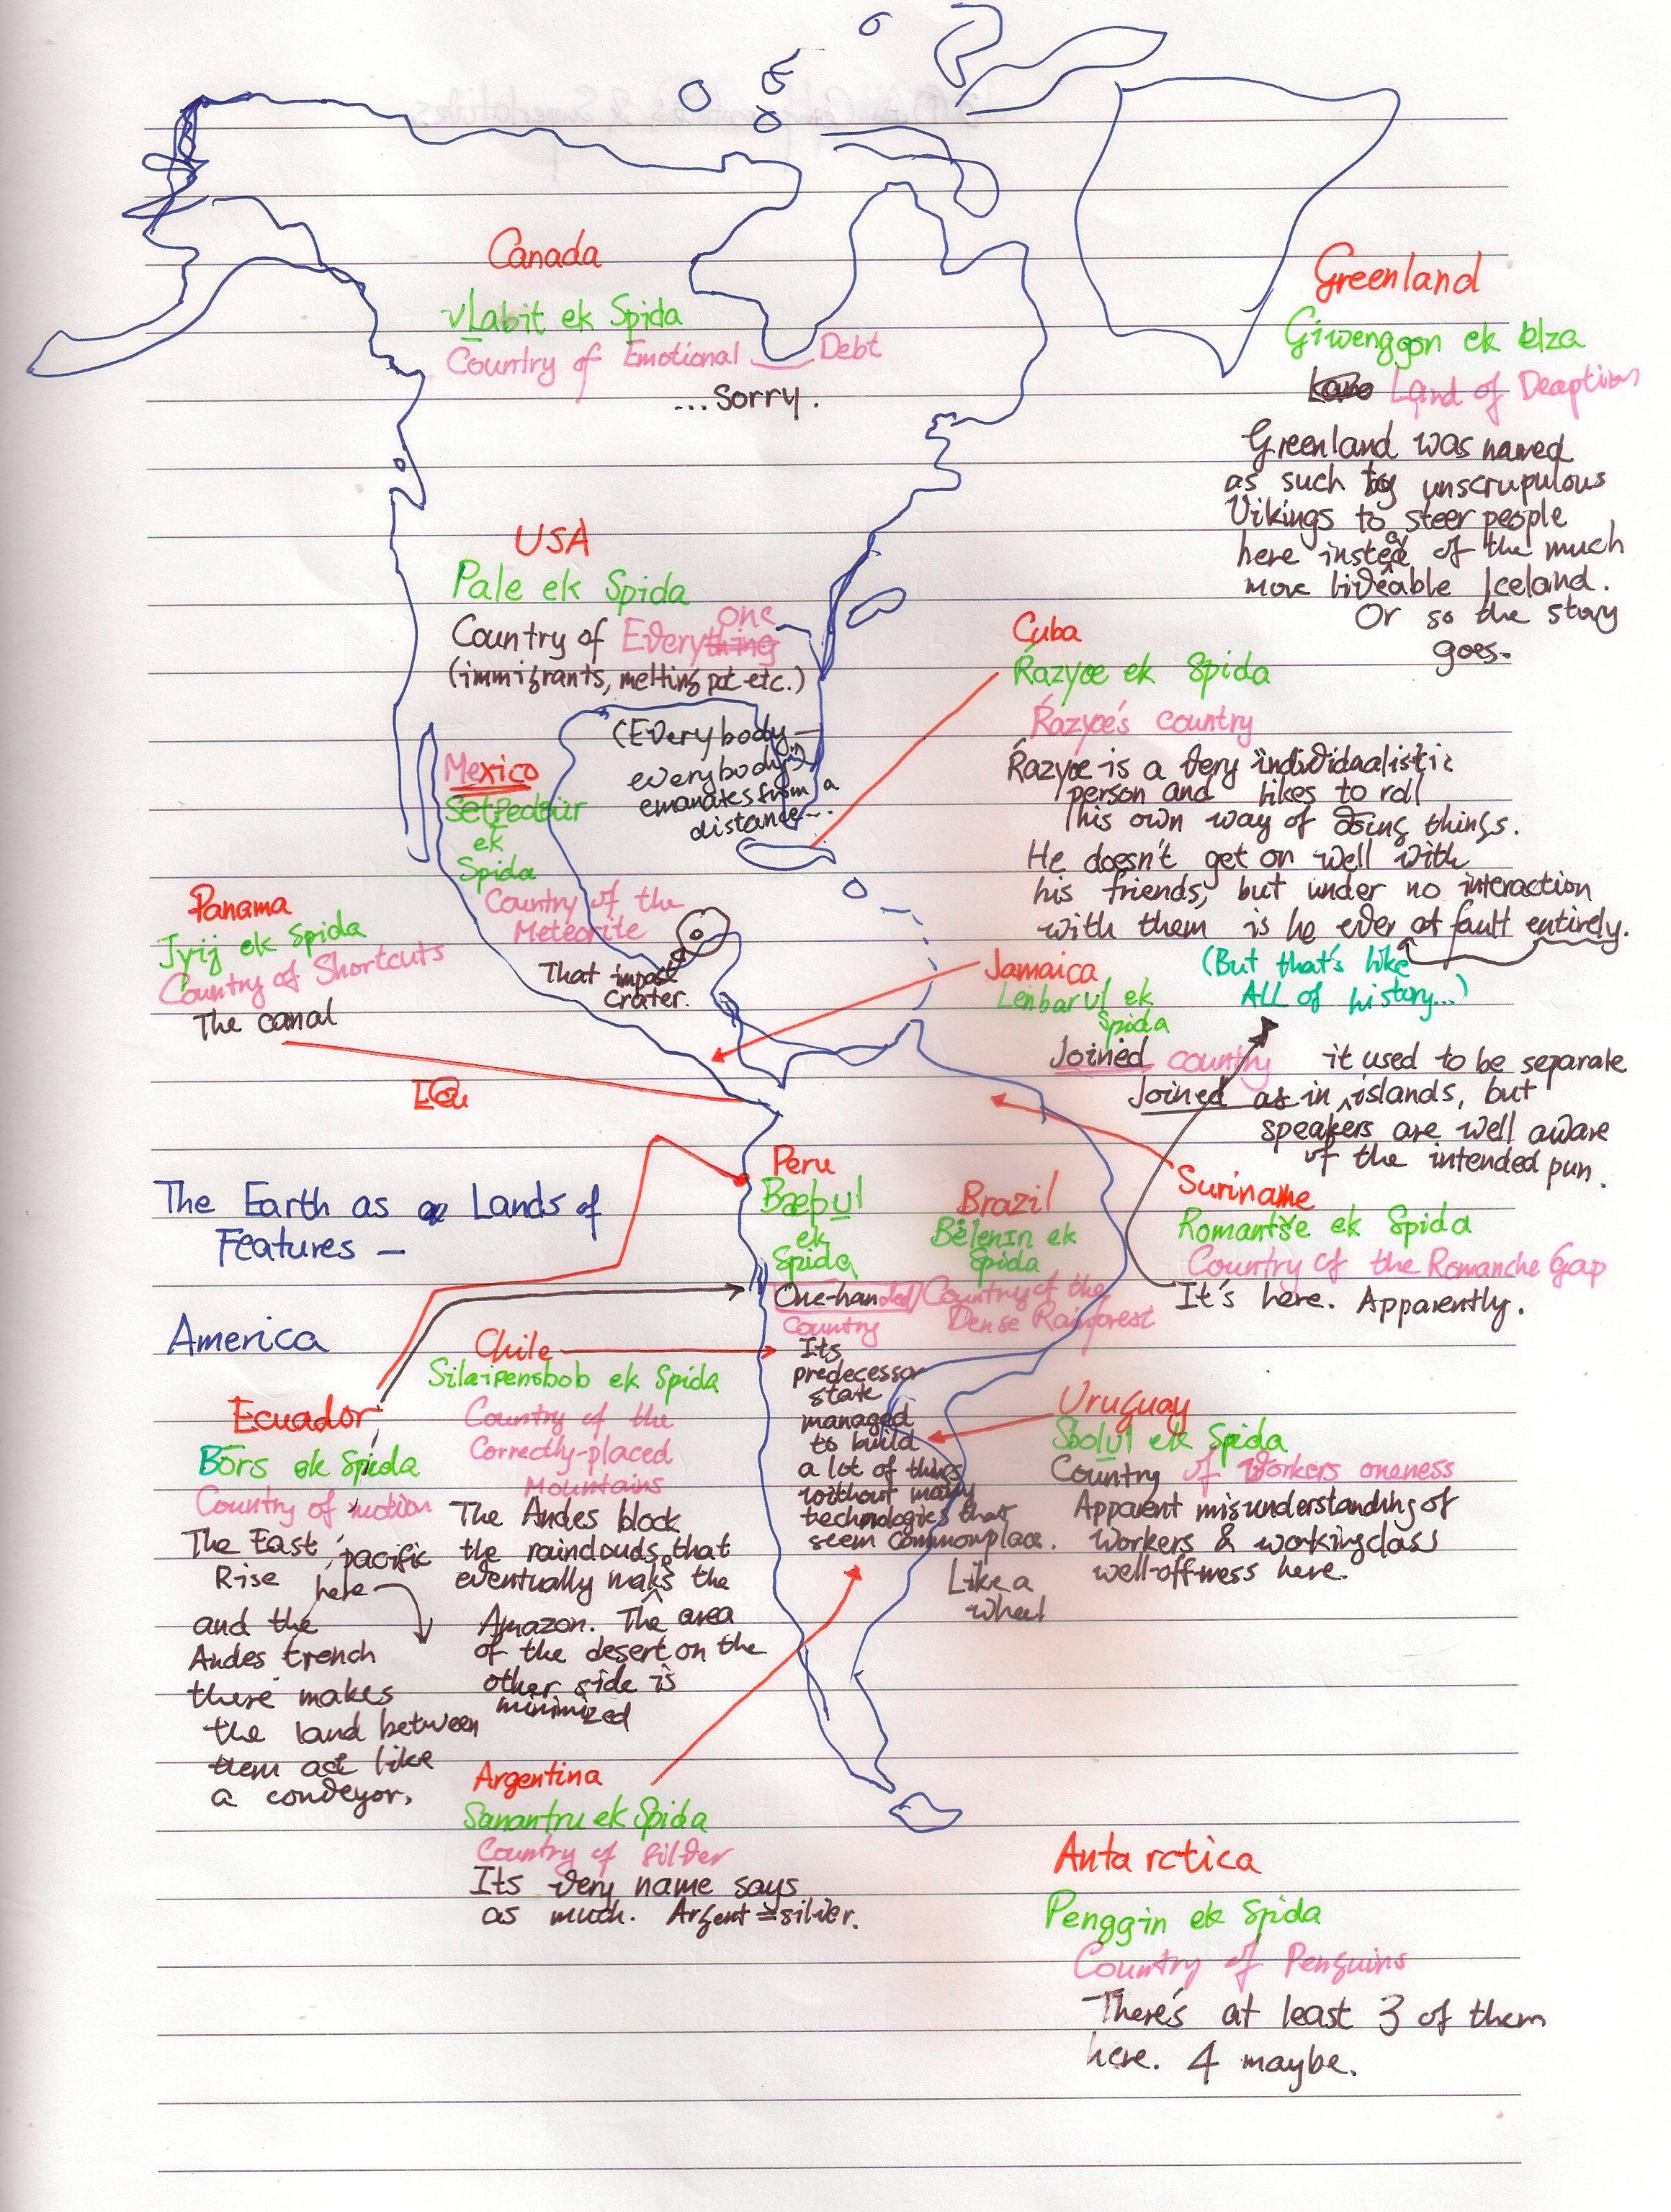 Canada
vLabit ek Spida
Country of Emotional Debt
...Sorry.
Greenland
Giwenggon ek elza
Land of Deaption
Greenland was named
as such by unscrupulous
Vikings to steer people
here instead of the much
more liveable Iceland.
Or so the story
goes.
USA
Pale ek Spida
one
Country of Everything
(immigrants, melting pot etc.)
(Everybody
everybody
emanates from a
distance...
Cuba
Ŕazyœ ek Spida
Ŕazyœ's country
Ŕazyœ is a very individaalistic
person and likes to roll
his own way of doing things.
He doesn't get on well with
his friends, but under no interaction
with them is he ever at fault entirely.
(But that's like
ALL of history...)
Mexico
Setpedbür
ek
Spida
Country of the
Meteorite
That impact
crater.
Panama
Jyij ek Spida
Country of Shortcuts
The canal
Jamaica
Lenbarul ek
Spida
Joined country
it used to be separate
Joined as in islands, but
speakers are well aware
of the intended pun.
The Earth as Lands of
Features –
America
Peru
Bæbul
ek
Spida
One-handed
Country
Its
predecessor
state
managed
to build
a lot of things
without many
technologies that
seem commonplace.
Like a
wheel
Brazil
Bėlenin ek
Spida
Country of the
Dense Rainforest
Suriname
Romantše ek Spida
Country of the Romanche Gap
It's here. Apparently.
Chile
Silaipensbob ek Spida
Country of the
Correctly-placed
Mountains
The Andes block
the rainclouds that
eventually make the
Amazon. The area
of the desert on the
other side is
minimized
Ecuador
Bōrs ek Spida
Country of motion
The East pacific
Rise here
and the
Andes trench
there makes
the land between
them act like
a conveyor.
Uruguay
Sbolul ek Spida
Country of Workers oneness
Apparent misunderstanding of
workers & workingclass
well-offness here.
Argentina
Sanantru ek Spida
Country of Silver
Its very name says
as much. Argent = silver.
Antarctica
Penggin ek Spida
Country of Penguins
There's at least 3 of them
here. 4 maybe.